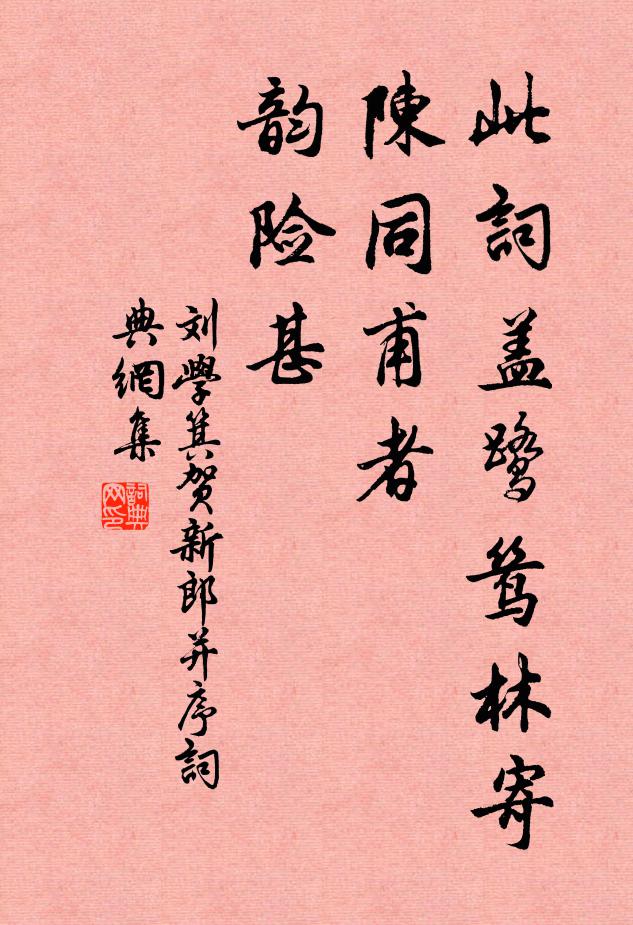 此詞盖鹭鸶林寄
陳同甫者
韵险甚
刘學箕贺新郎并序詞
典網集
詞典
网印